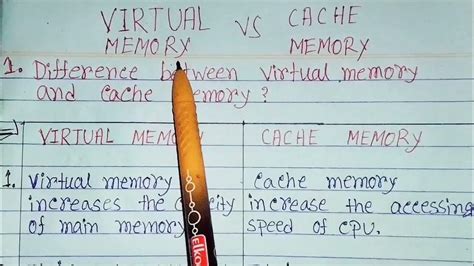 VIRTUAL MEMORY VS CACHE MEMORY
1. Difference between virtual memory
and cache memory?
VIRTUAL MEMORY CACHE MEMORY
1. Virtual memory cache memory
increases the increase the accessing
of main memory speed of CPU.
Elko